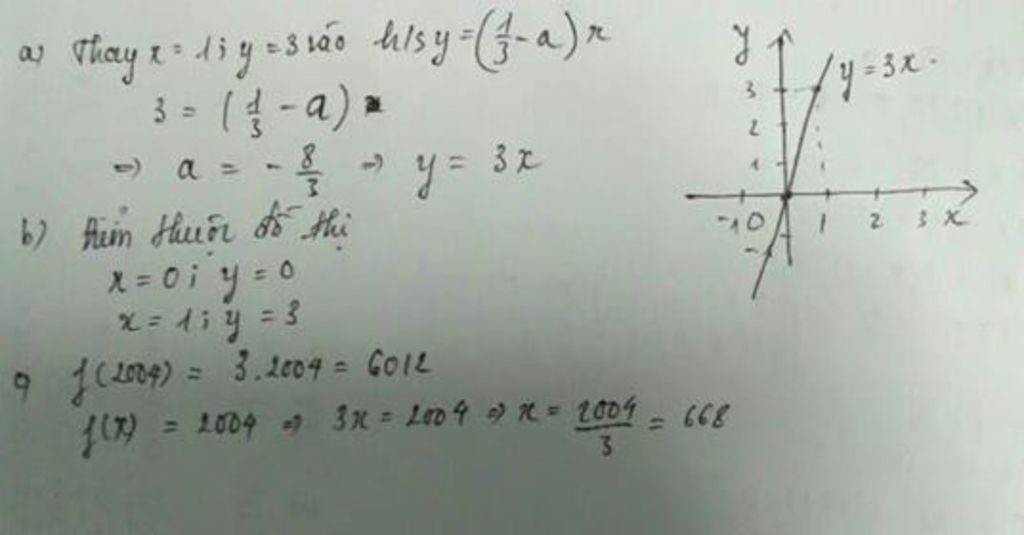 a) Thay x = 1; y = 3 vào h/s y = (1/3 - a) x
3 = (1/3 - a)
=> a = - 8/3 => y = 3x
b) Điểm thuộc đồ thị
x = 0; y = 0
x = 1; y = 3
f(2004) = 3.2004 = 6012
f(x) = 2004 => 3x = 2004 => x = 2004/3 = 668
y
y = 3x
3
2
1
-1 0 1 2 3 x